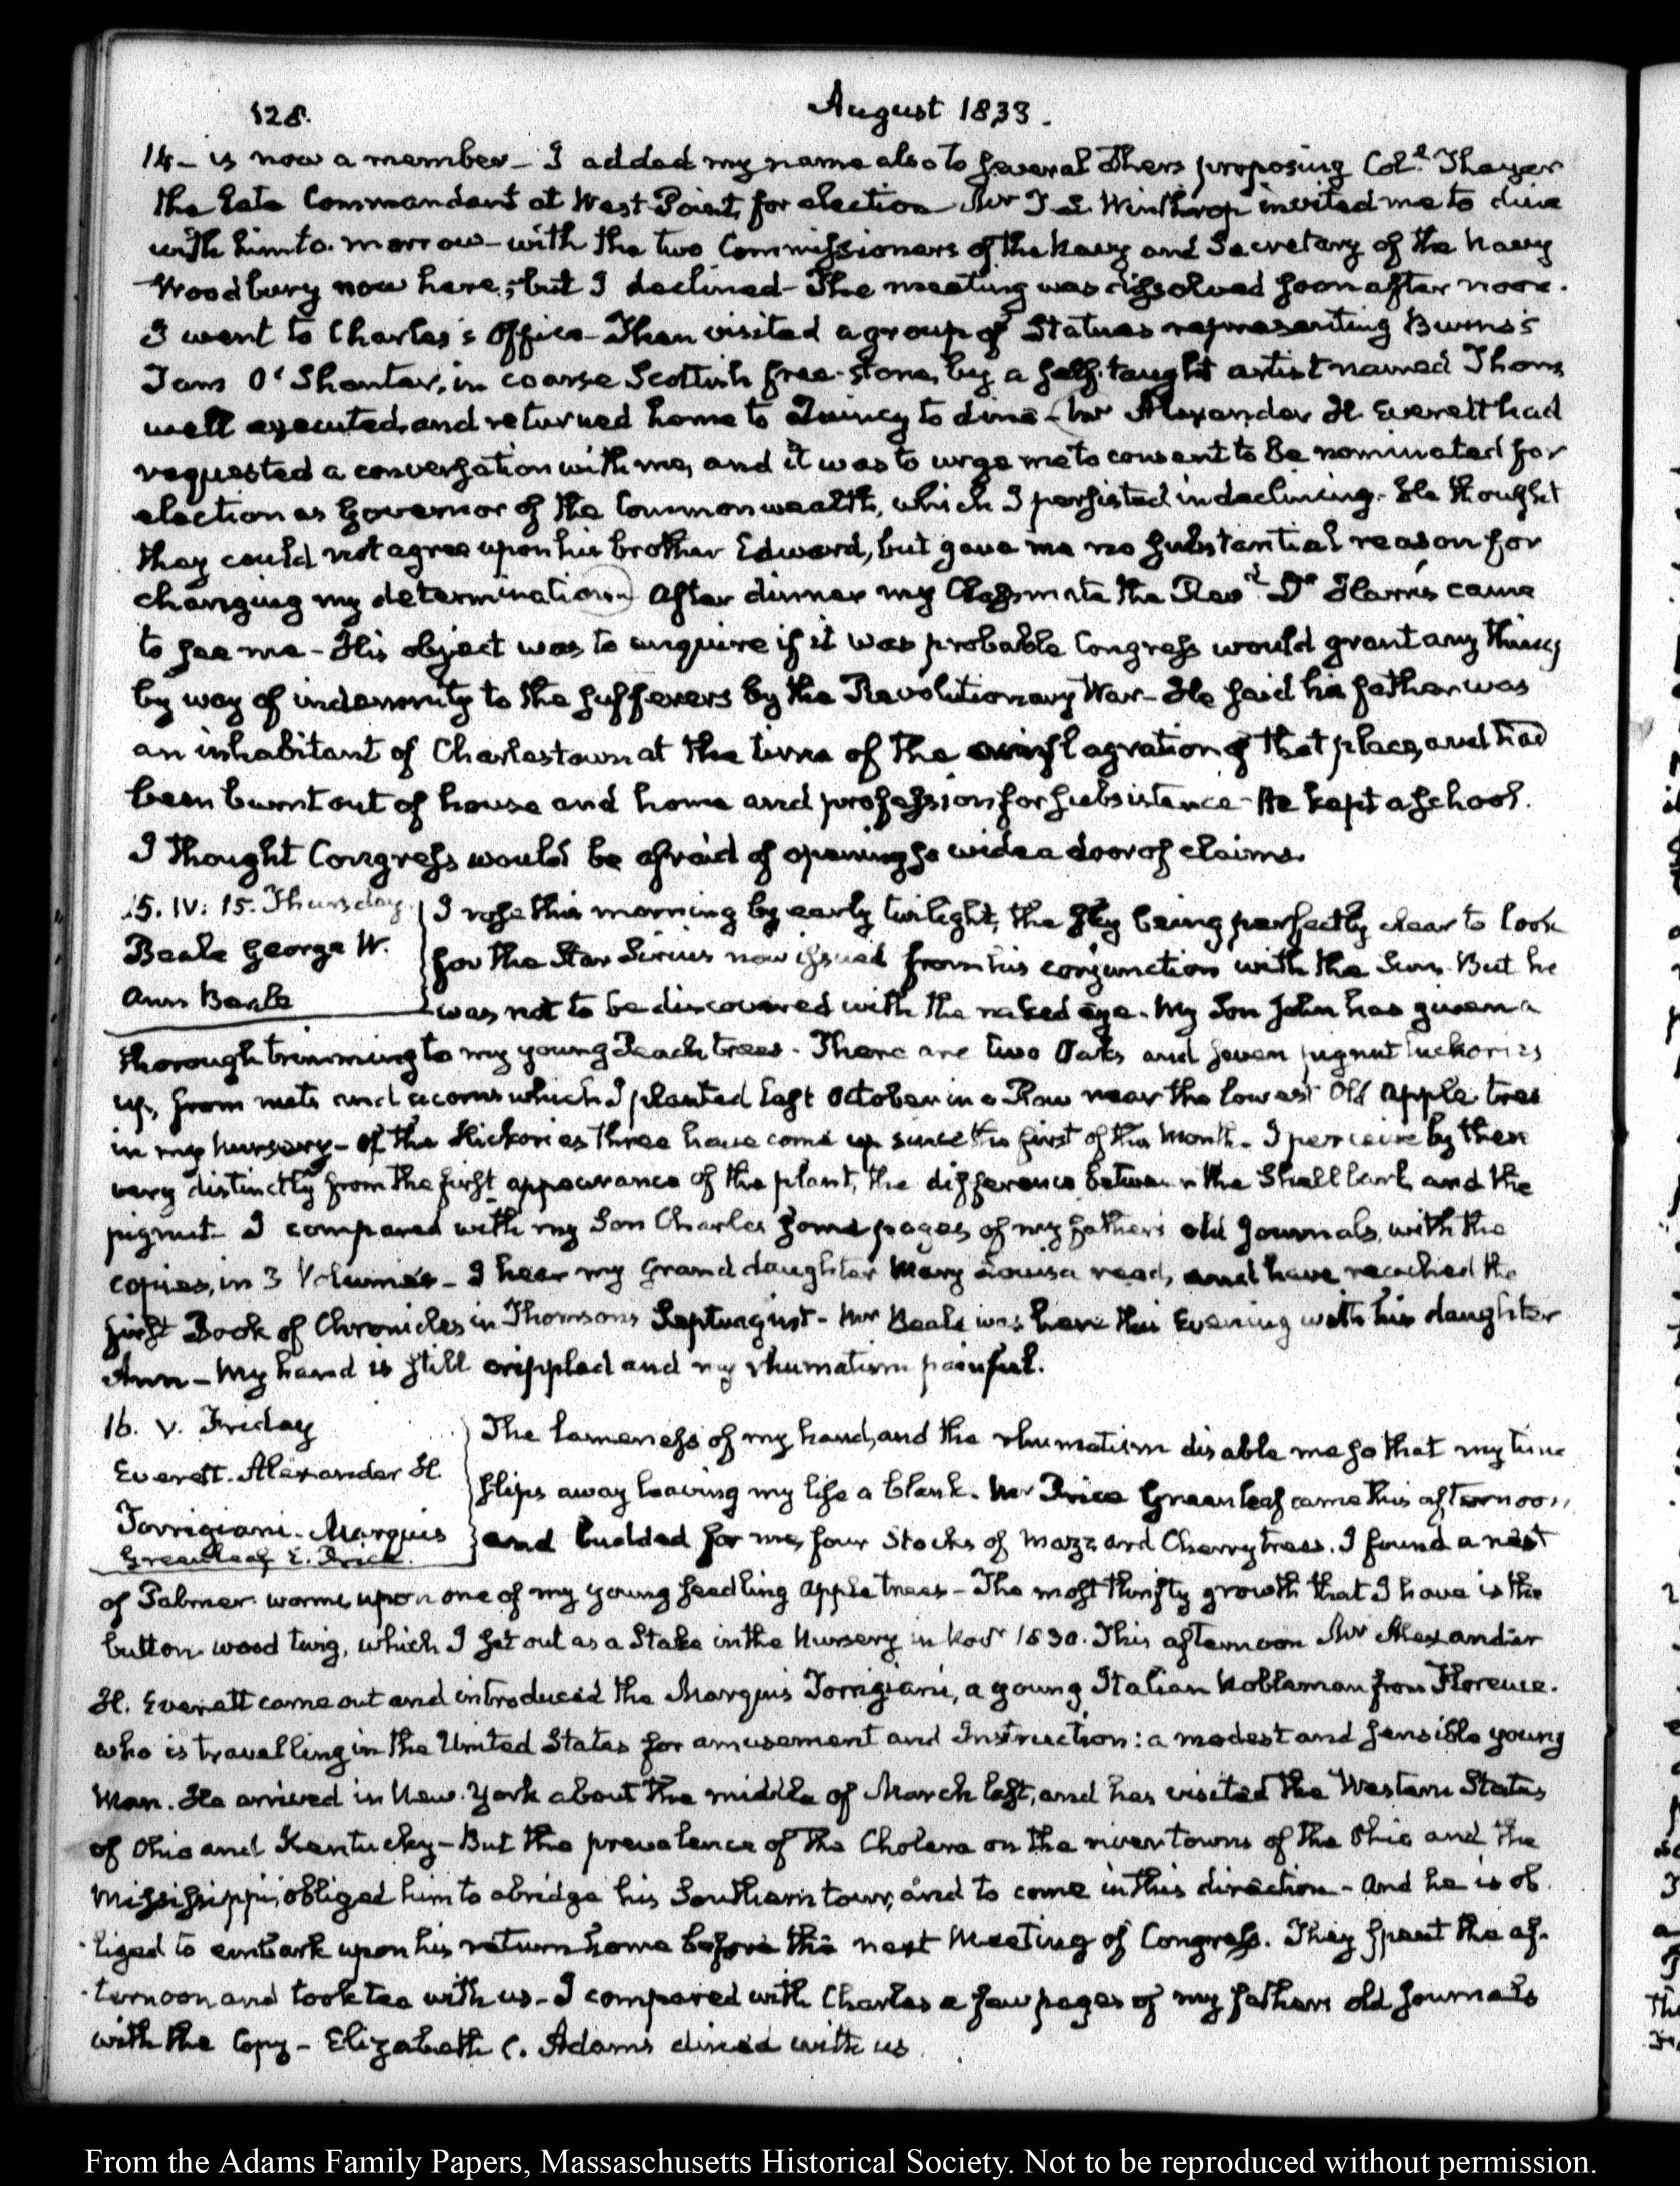 128.
August 1833.
14 — is now a member — I added my name also to several others proposing Colᵒ. Thayer
the late Commandant at West Point, for election — Mr T. L. Winthrop invited me to dine
with him to-morrow — with the two Commissioners of the Navy and Secretary of the Navy
Woodbury now here; but I declined — The meeting was dissolved soon after noon.
I went to Charles's Office — Then visited a group of Statues representing Burns's
Tam O'Shanter, in coarse Scottish free-stone, by a self-taught artist named Thom,
well executed, and returned home to Quincy to dine — Mr Alexander H. Everett had
requested a conversation with me, and it was to urge me to consent to be nominated for
election as Governor of the Commonwealth, which I persisted in declining. He thought
they could not agree upon his brother Edward, but gave me no substantial reason for
changing my determination. After dinner my Classmate the Revd Dr Harris came
to see me — His object was to enquire if it was probable Congress would grant any thing
by way of indemnity to the sufferers by the Revolutionary War — He said his father was
an inhabitant of Charlestown at the time of the conflagration of that place, and had
been burnt out of house and home and profession for subsistence — He kept a school.
I thought Congress would be afraid of opening so wide a door of claims.
15. IV: 15. Thursday.
Beale George W.
Ann Beale
I rose this morning by early twilight, the sky being perfectly clear to look
for the Star Sirius now issued from his conjunction with the Sun. But he
was not to be discovered with the naked eye. My Son John has given a
thorough trimming to my young Peach trees. There are two Oaks and seven pignut huckories
up, from nuts and acorns which I planted last October in a Row near the lowest Old apple tree
in my nursery — Of the Hickories three have come up since the first of this Month. I perceive by these
very distinctly from the first appearance of the plant, the difference between the Shellbark and the
pignut — I compared with my Son Charles some pages of my father's old Journals, with the
copies, in 3 Volumes — I hear my Grand daughter Mary Louisa read, and have reached the
first Book of Chronicles in Thomson's Septuagint — Mr Beale was here this Evening with his daughter
Ann — My hand is still crippled and my rhumatism painful.
16. V. Friday
Everett. Alexander H.
Torrigiani. Marquis
Greenleaf E. Price.
The lameness of my hand, and the rhumatism disable me so that my time
slips away leaving my life a blank. Mr Price Greenleaf came this afternoon,
and budded for me, four Stocks of Mazzard Cherry trees. I found a nest
of Palmer-worms, upon one of my young seedling apple trees — The most thrifty growth that I have is the
button-wood twig, which I set out as a Stake in the Nursery in Novr 1830. This afternoon Mr Alexander
H. Everett came out and introduced the Marquis Torrigiani, a young Italian Nobleman from Florence.
who is travelling in the United States for amusement and Instruction: a modest and sensible young
Man. He arrived in New-York about the middle of March last, and has visited the Western States
of Ohio and Kentucky — But the prevalence of the Cholera on the river towns of the Ohio and the
Mississippi, obliged him to abridge his Southern tour, and to come in this direction — And he is ob-
liged to embark upon his return home before the next Meeting of Congress. They spent the af-
ternoon and took tea with us — I compared with Charles a few pages of my father's old Journals
with the Copy — Elizabeth C. Adams dined with us.
From the Adams Family Papers, Massaschusetts Historical Society. Not to be reproduced without permission.